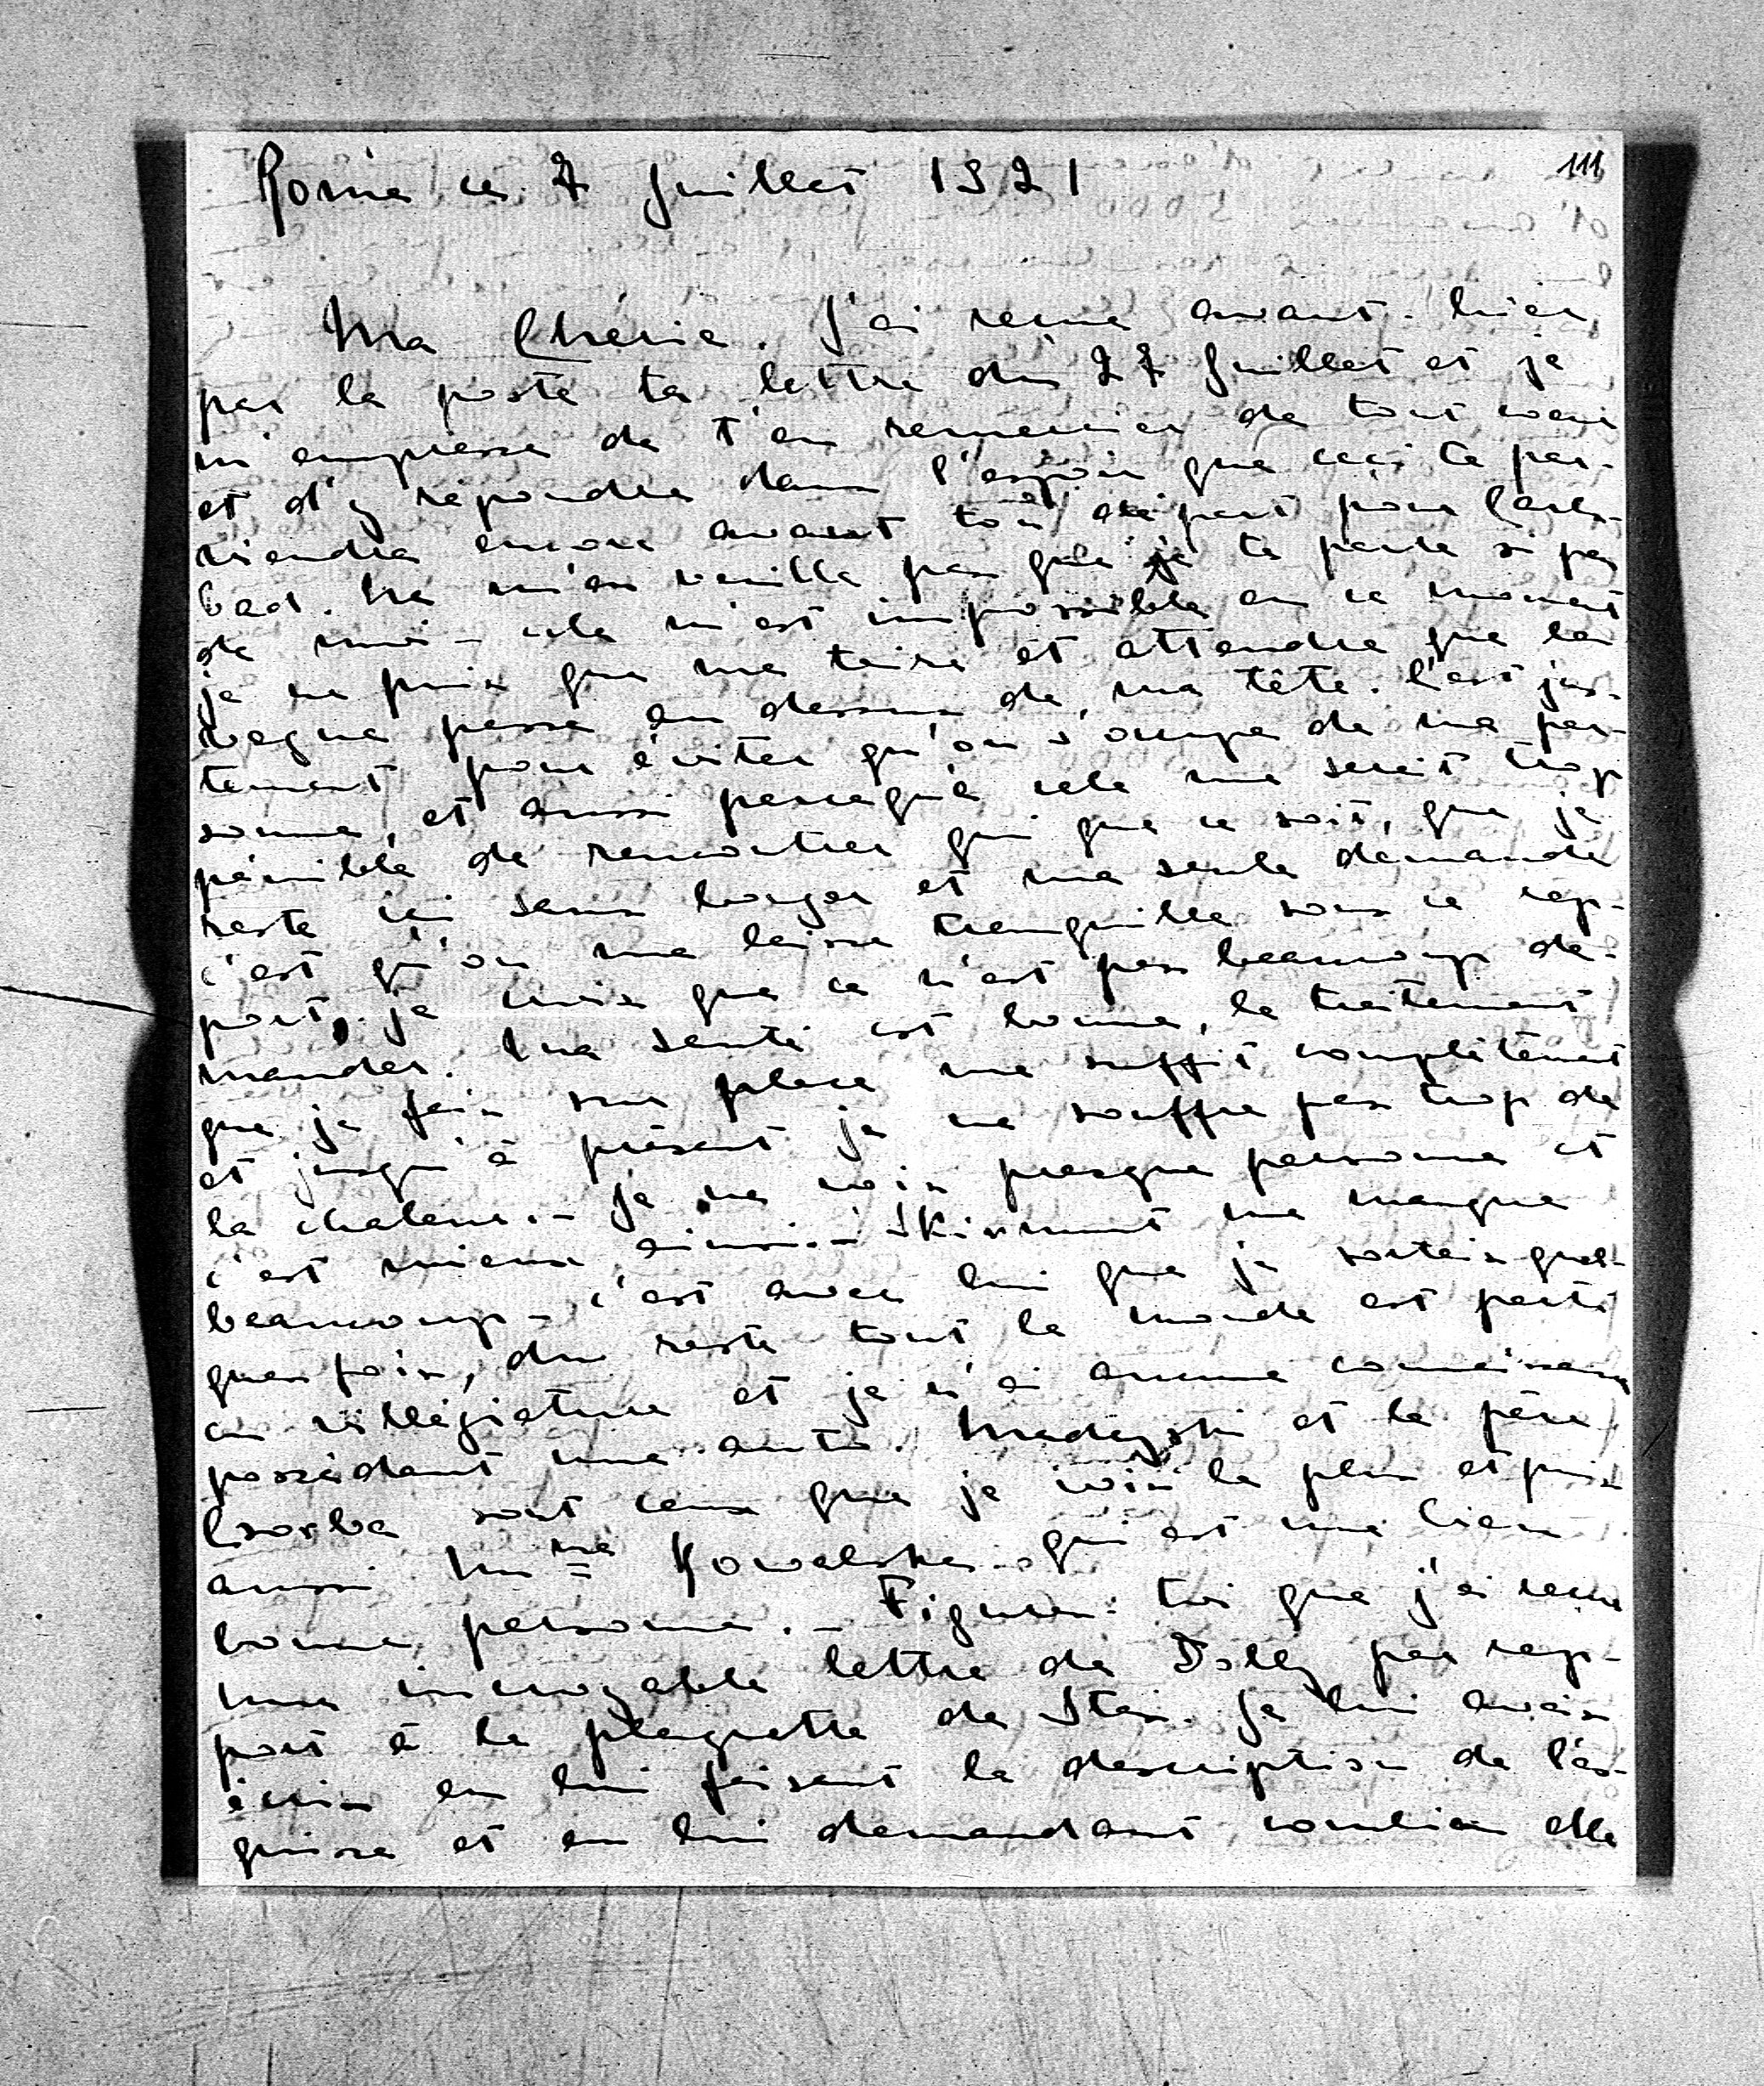 111
Rome ce 7 Juillet 1921
Ma Chérie. J'ai reçue avant-hier
par la poste ta lettre du 27 Juillet et je
m'empresse de t'en remercier de tout coeur
et d'y répondre dans l'espoir que ceci te par-
viendra encore avant ton départ pour Carls-
bad. Ne m'en veuille pas que je te parle si peu
de moi – cela m'est impossible en ce moment
je ne puis que me taire et attendre que la
vague passe au dessus de ma tête. C'est jus-
tement pour éviter qu'on s'occupe de ma per-
sonne, et aussi parcequ'à cela me serait trop
pénible de rencontrer qui que ce soit, que je
reste ici sans bouger et ma seule demande
c'est qu'on me laisse tranquille sous ce rap-
port, je crois que ce n'est pas beaucoup de-
mander. Ma santé est bonne, le traitement
que je fais sur place me suffit complètement
et jusqu'à présent je ne souffre pas trop de
la chaleur. – Je ne vois presque personne et
c'est mieux ainsi. – Skirmunt me manque
beaucoup – c'est avec lui que je sortais quel-
ques fois, du reste tout le monde est parti
en villégiature et je n'ai aucune connaissance
possédant une auto. Madeyski et le père
Csorba sont ceux que je vois le plus et puis
aussi Mme Kowalska qui est une bien
bonne personne. – Figures-toi que j'ai reçu
une incroyable lettre de Dolly par rap-
port à la plaquette de Stas. Je lui avais
écris en lui faisant la description de l'es-
quisse et en lui demandant combien elle